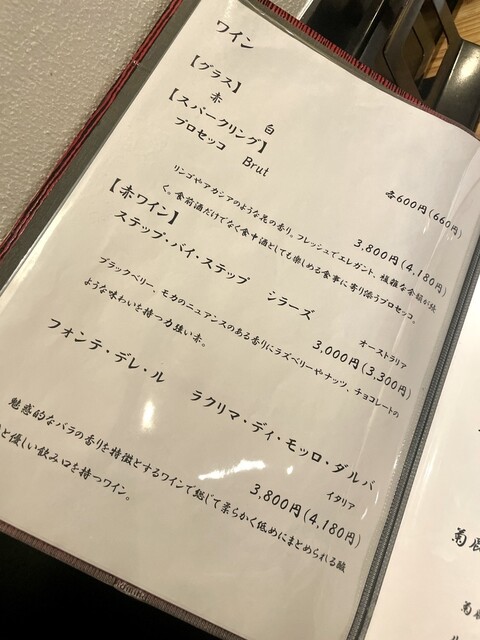 ワイン
【グラス】
赤 白
各600円(660円)
【スパークリング】
プロセッコ Brut
3,800円(4,180円)
リンゴやアカシアのような花の香り。フレッシュでエレガント、複雑な余韻が続
く。食前酒だけでなく食中酒としても楽しめる食事に寄り添うプロセッコ。
【赤ワイン】
ステップ・バイ・ステップ シラーズ
オーストラリア
3,000円(3,300円)
ブラックベリー、モカのニュアンスのある香りにラズベリーやナッツ、チョコレートの
ような味わいを持つ力強い赤。
フォンテ・デレ・ル ラクリマ・ディ・モッロ・ダルバ
イタリア
3,800円(4,180円)
魅惑的なバラの香りを特徴とするワインで総じて柔らかく低めにまとめられる酸
と優しい飲み口を持つワイン。
菊
菊